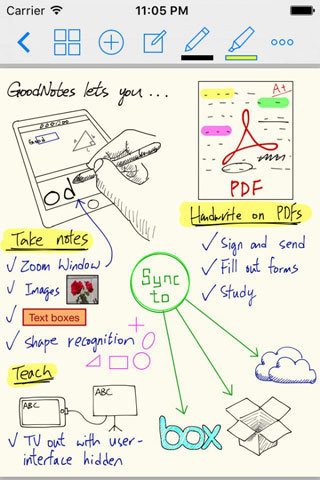 Carrier 11:05 PM
GoodNotes lets you ...
Good
od
A+
PDF
Handwrite on PDFs
✓ Sign and send
✓ Fill out forms
✓ Study
Take notes
✓ Zoom Window
✓ Images
✓ Text boxes
✓ shape recognition
Sync
to
Teach
ABC
ABC
✓ TV out with user-
interface hidden
box